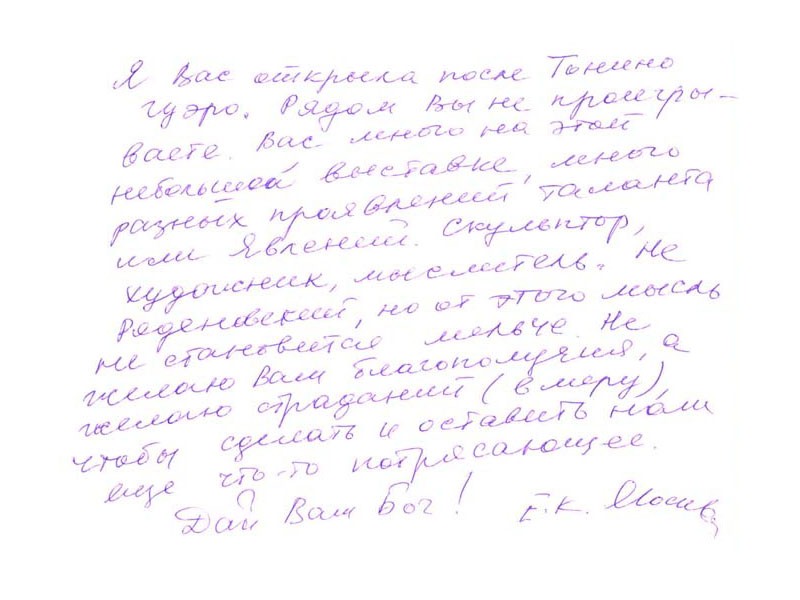 Я Вас открыла после Тонино
гуэро. Рядом Вы не проигры-
ваете. Вас много на этой
небольшой выставке, много
разных проявлений таланта
или явлений. Скульптор,
художник, мыслитель. Не
Роденовский, но от этого мысль
не становится мельче. Не
желаю Вам благополучия, а
желаю страданий (в меру),
чтобы сделать и оставить нам
еще что-то потрясающее.
Дай Вам Бог! Е.К. Москва